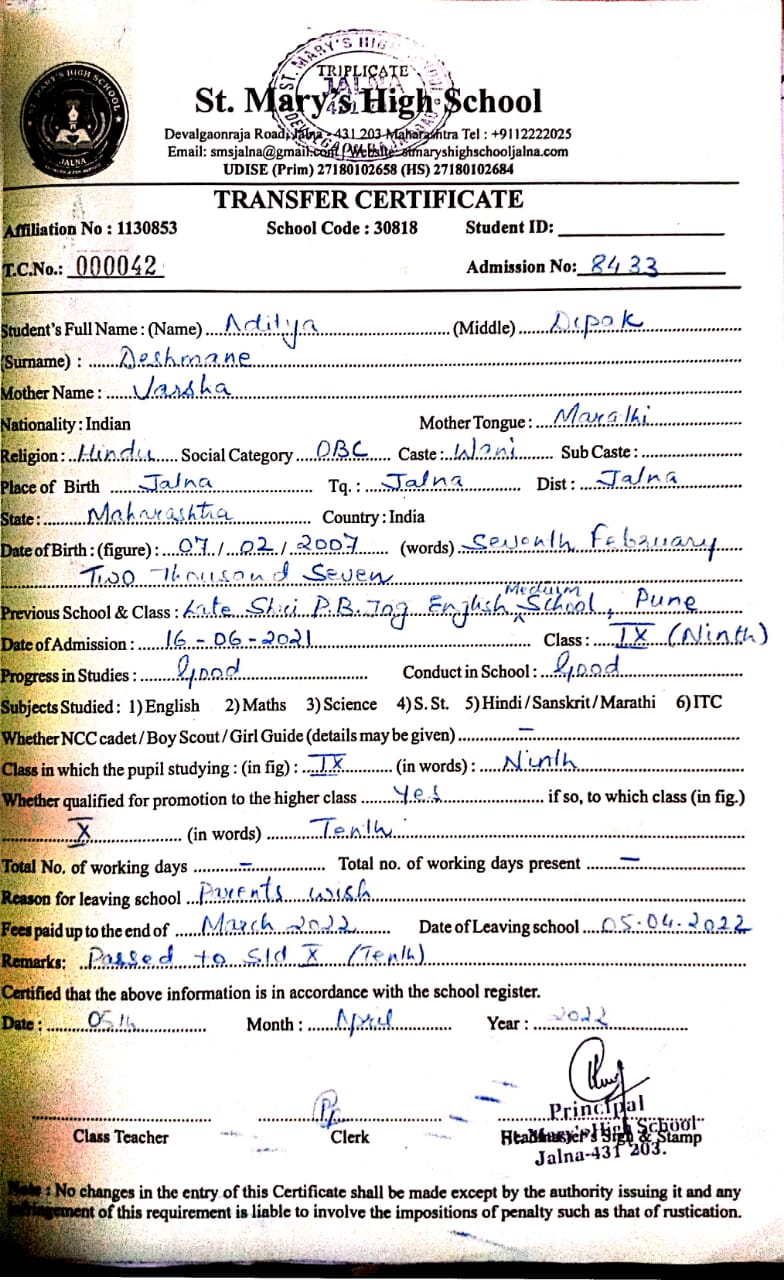 ST. MARY'S HIGH SCHOOL
JALNA
TRIPLICATE
St. Mary's High School
Devalgaonraja Road, Jalna - 431 203 Maharashtra Tel : +9112222025
Email: smsjalna@gmail.com | Website: stmaryshighschooljalna.com
UDISE (Prim) 27180102658 (HS) 27180102684
TRANSFER CERTIFICATE
Affiliation No : 1130853 School Code : 30818 Student ID:
T.C.No.: 000042 Admission No: 8433
Student's Full Name : (Name) Aditya (Middle) Dipak
(Surname) : Deshmane
Mother Name : Varsha
Nationality : Indian Mother Tongue : Marathi
Religion : Hindu Social Category OBC Caste : Wani Sub Caste :
Place of Birth Jalna Tq. : Jalna Dist : Jalna
State : Maharashtra Country : India
Date of Birth : (figure) : 07 / 02 / 2007 (words) Seventh February
Two Thousand Seven
Previous School & Class : Late Shri P.B. Jog English Medium School, Pune
Date of Admission : 16 - 06 - 2021 Class : IX (Ninth)
Progress in Studies : Good Conduct in School : Good
Subjects Studied : 1) English 2) Maths 3) Science 4) S. St. 5) Hindi / Sanskrit / Marathi 6) ITC
Whether NCC cadet / Boy Scout / Girl Guide (details may be given) –
Class in which the pupil studying : (in fig) : IX (in words) : Ninth
Whether qualified for promotion to the higher class Yes if so, to which class (in fig.)
X (in words) Tenth
Total No. of working days – Total no. of working days present –
Reason for leaving school Parents wish
Fees paid up to the end of March 2022 Date of Leaving school 05.04.2022
Remarks: Passed to Std X (Tenth)
Certified that the above information is in accordance with the school register.
Date : 05th Month : April Year : 2022
Principal
Class Teacher Clerk Headmaster's Sign & Stamp
St. Mary's High School
Jalna-431 203.
Note : No changes in the entry of this Certificate shall be made except by the authority issuing it and any
infringement of this requirement is liable to involve the impositions of penalty such as that of rustication.